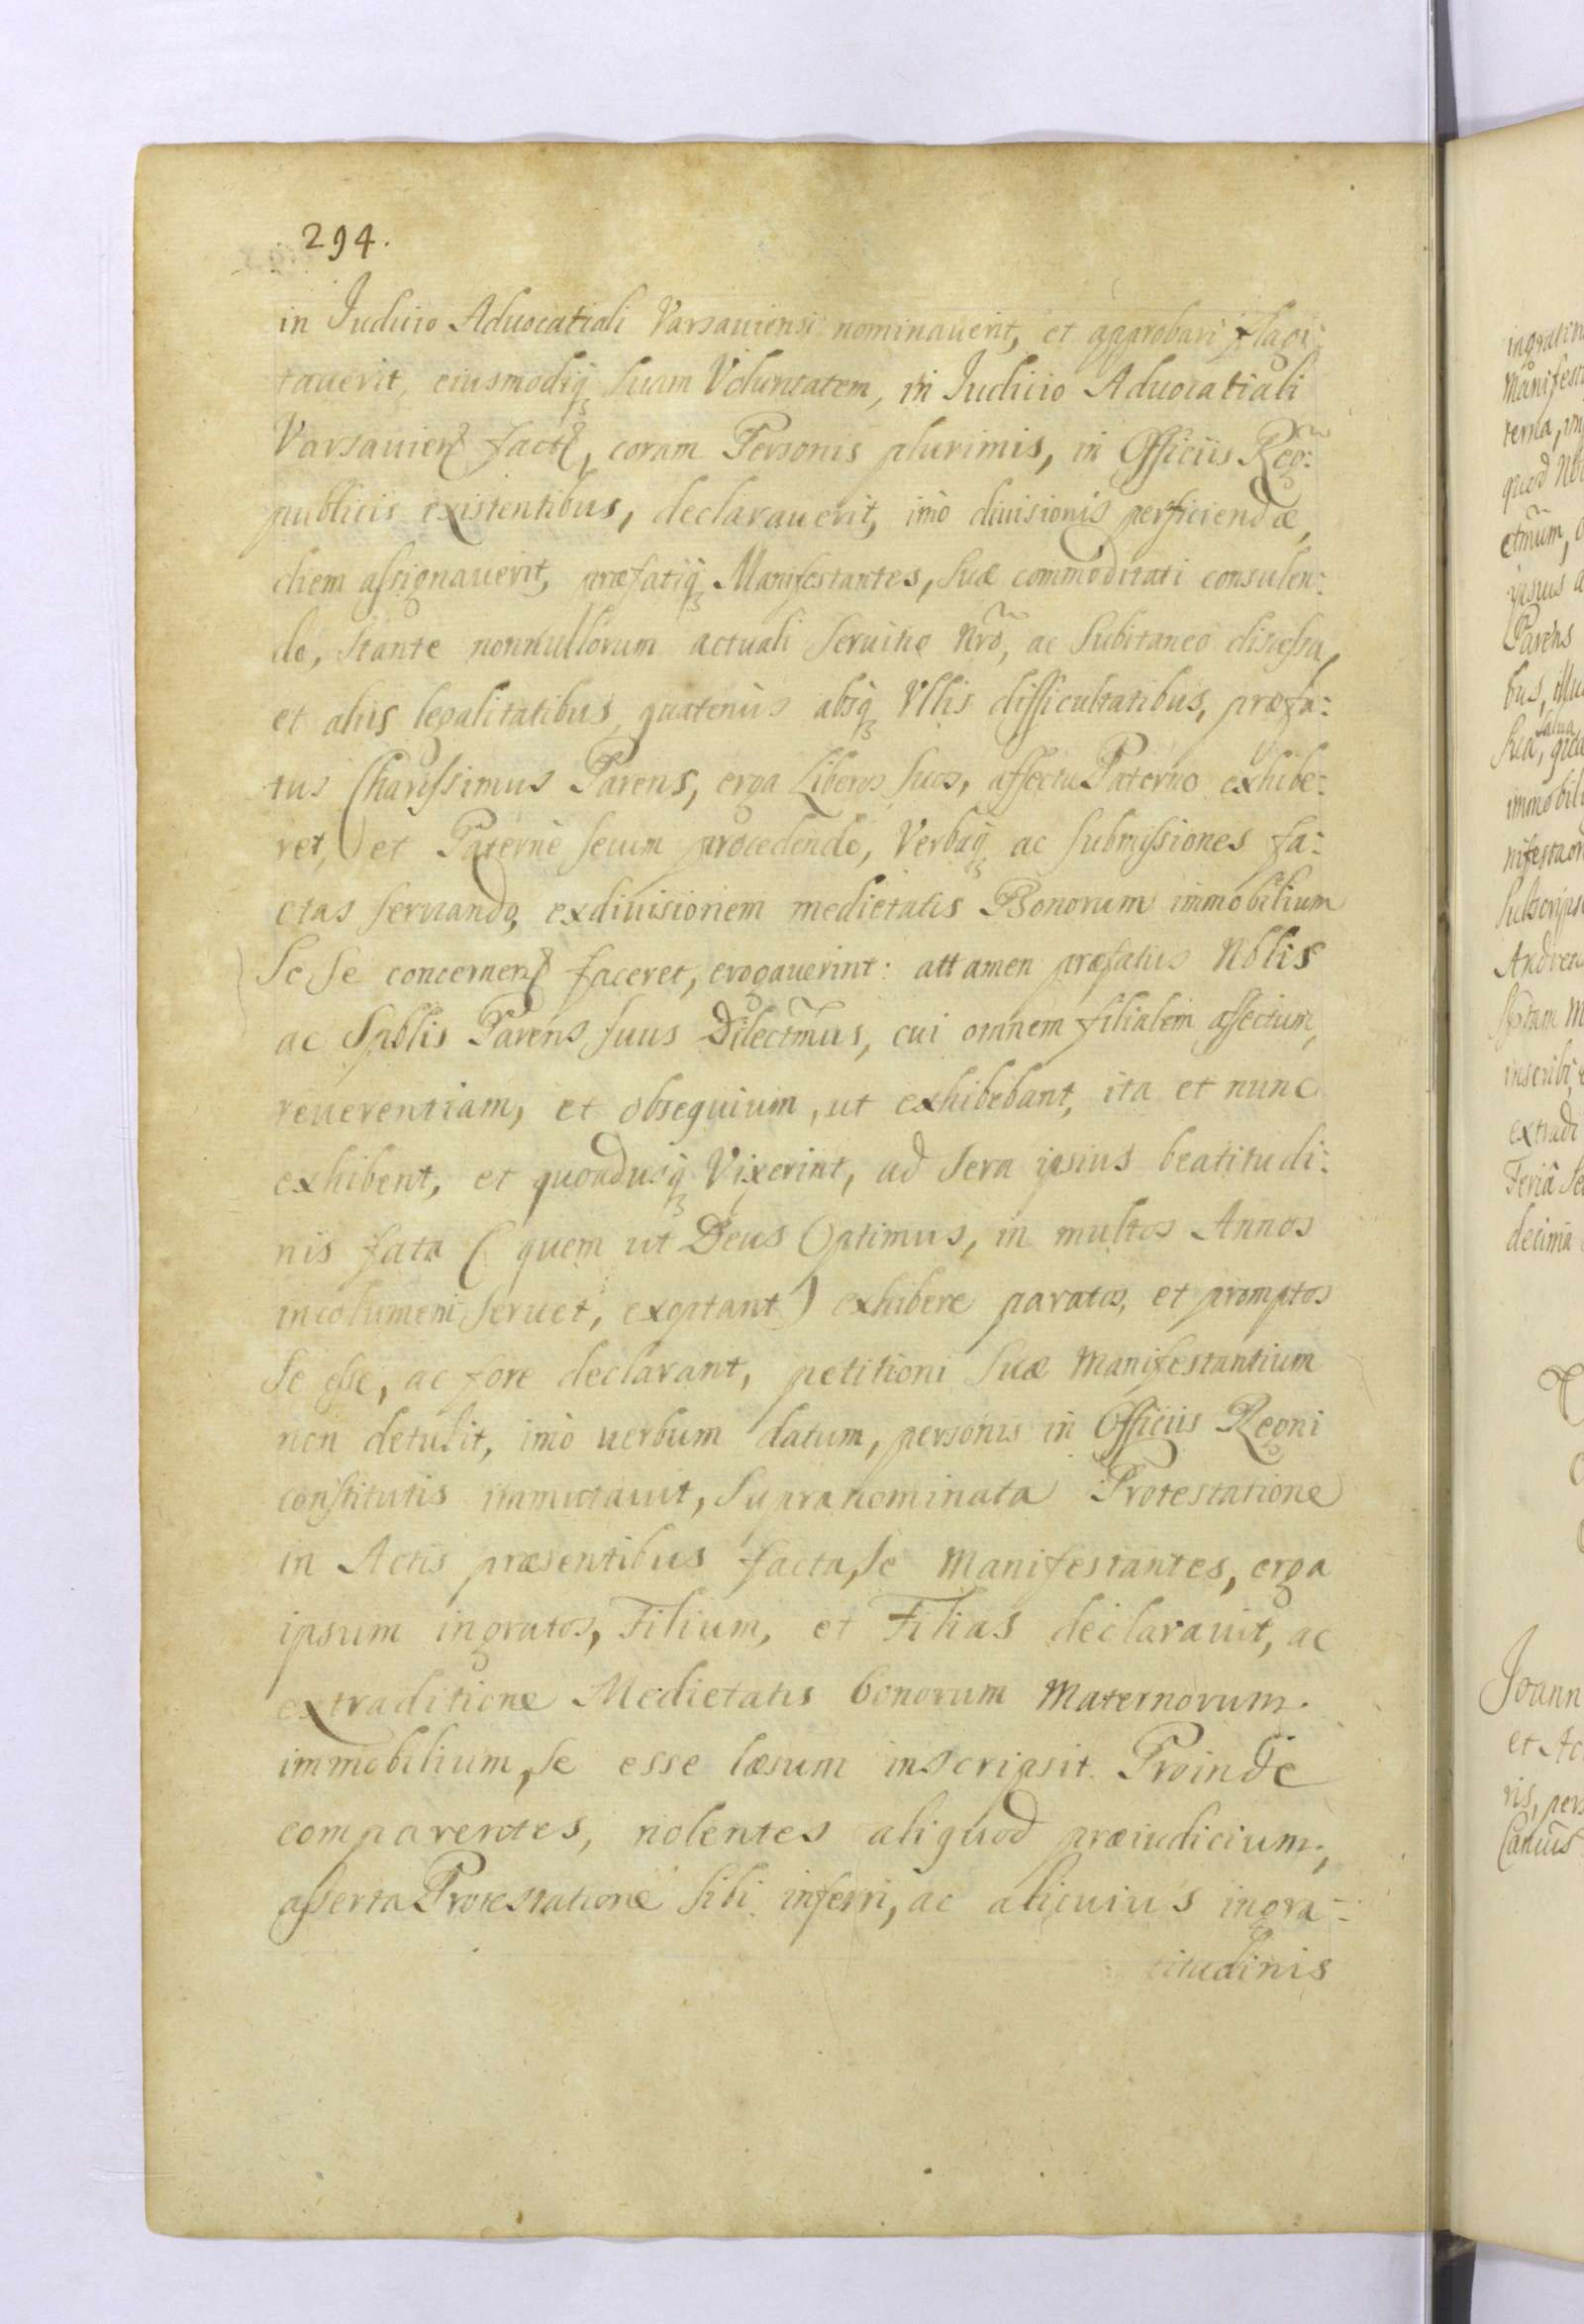 294.
in Iudicio Aduocatiali Varsauiensi nominauerit, et approbari flagi:
tauerit, eiusmodiq́ꝫ suam Voluntatem, in Iudicio Aduocatiali
Varsauienꝭ factꝭ, coram Personis plurimis, in Officiis Reg̃:
publicis existentibus, declarauerit, imò diuisionis perficiendæ,
diem assignauerit, præfatiq́ꝫ Manifestantes, suæ commoditati consulen:
do, stante nonnullorum actuali seruitio nr̃o, ac subitaneo discessu,
et aliis legalitatibus, quatenùs absq́ꝫ Vllis difficultatibus, præfa:
tus Charissimus Parens, erga Liberos suos, affectu Paterno exhibe:
ret, et Paternè secum procedendo, Verbaq́ꝫ ac submissiones fa:
ctas seruando, exdiuisionem medietatis Bonorum immobilium
Se se concernenꝭ faceret, erogauerint: attamen præfatus Nòblis
ac Spblis Parens suus Dilectm̃us, cui omnem filialem affectum,
reuerentiam, et obsequium, ut exhibebant, ita et nunc
exhibent, et quoadusq́ꝫ Vixerint, ad sera ipsius beatitudi:
nis fata (quem ut Deus Optimus, in multos Annos
incolumem seruet, exoptant) exhibere paratos, et promptos
se esse, ac fore declarant, petitioni suæ Manifestantium
non detulit, imò uerbum datum, personis in Officiis Regni
constitutis immutauit, supranominata Protestatione
in Actis præsentibus facta, se Manifestantes, erga
ipsum ingratos, Filium, et Filias declarauit, ac
extraditione Medietatis bonorum Maternorum
immobilium, se esse læsum inscripsit. Proinde
comparentes, nolentes aliquod præiudicium,
asserta Protestatione sibi inferri, ac alicuius ingra:
titudinis